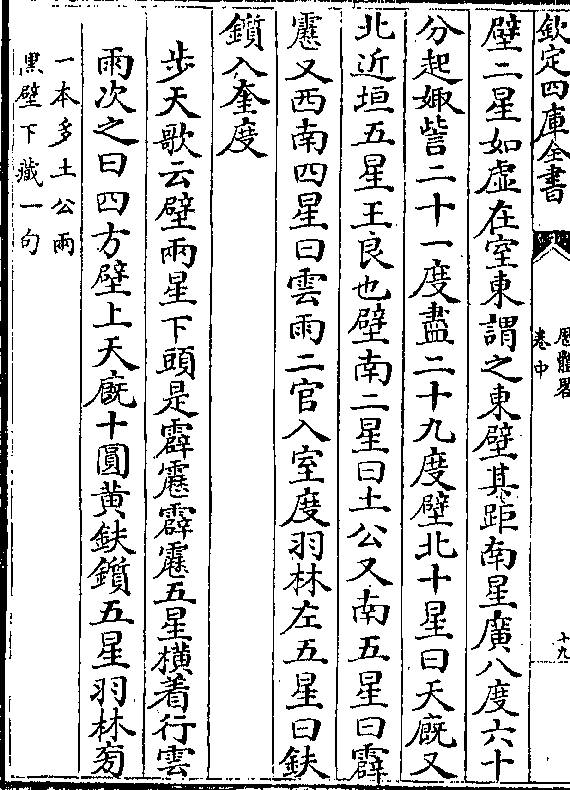 欽定四庫全書
厯體畧
卷中
十九
壁二星如虛在室東謂之東壁其距南星廣八度六十
分起娵訾二十一度盡二十九度壁北十星曰天廐又
北近垣五星王良也壁南二星曰土公又南五星曰霹
靂又西南四星曰雲雨二官入室度羽林左五星曰鈇
鑕入奎度
步天歌云壁兩星下頭是霹靂霹靂五星橫着行雲
雨次之曰四方壁上天廐十圓黄鈇鑕五星羽林旁
一本多土公兩
黑壁下藏一句